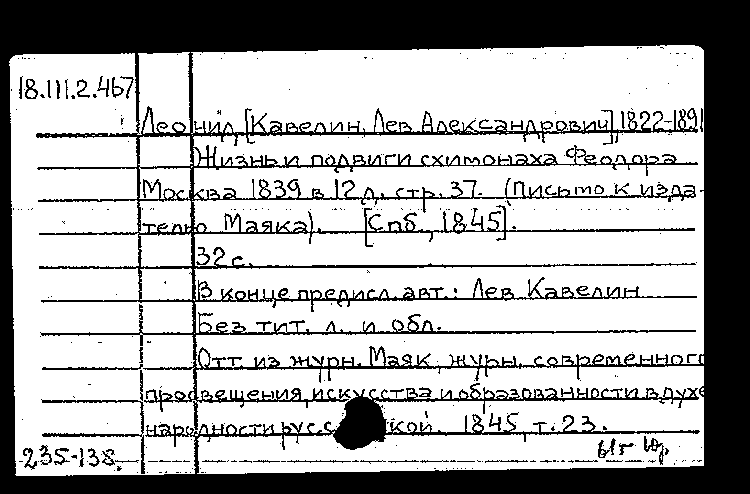 18.III.2.467
Леонид, [Кавелин, Лев Александрович], 1822-1891
Жизнь и подвиги схимонаха Феодора
Москва 1839 в 12 д. стр. 37. (Письмо к изда-
телю Маяка). [Спб., 1845].
32 с.
В конце предисл. авт.: Лев Кавелин
Без тит. л. и обл.
Отт. из журн. Маяк, журн. современного
просвещения, искусства и образованности в духе
народности рус. 1845, т. 23.
235-138.